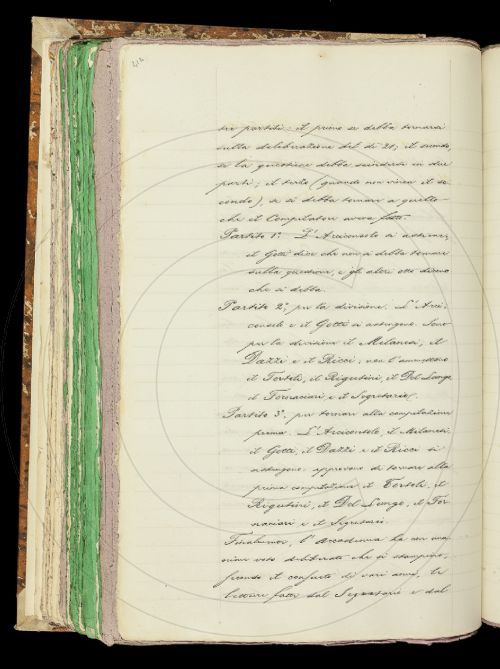 414
tre partiti: il primo se debba tornarsi
sulla deliberazione del dì 21; il secondo,
se la questione debba scindersi in due
parti; il terzo (quando non vinca il se-
condo), se si debba tornare a quello
che il Compilatore aveva fatto.
Partito 1º. L'Arciconsolo si astiene;
il Gotti dice che non si debba tornare
sulla questione, e gli altri otto dicono
che si debba.
Partito 2º, per la divisione. L'Arci-
consolo e il Gotti si astengono. Sono
per la divisione il Milanesi, il
Dazzi e il Ricci; non l'ammettono
il Tortoli, il Rigutini, il Del Lungo,
il Fornaciari, e il Segretario.
Partito 3º, per tornare alla compilazione
prima. L'Arciconsolo, il Milanesi,
il Gotti, il Dazzi e il Ricci si
astengono: approvano di tornare alla
prima compilazione il Tortoli, il
Rigutini, il Del Lungo, il For-
naciari e il Segretario.
Finalmente, l'Accademia ha con una-
nime voto deliberato che si stampino,
secondo il consueto di vari anni, le
letture fatte dal Segretario e dal